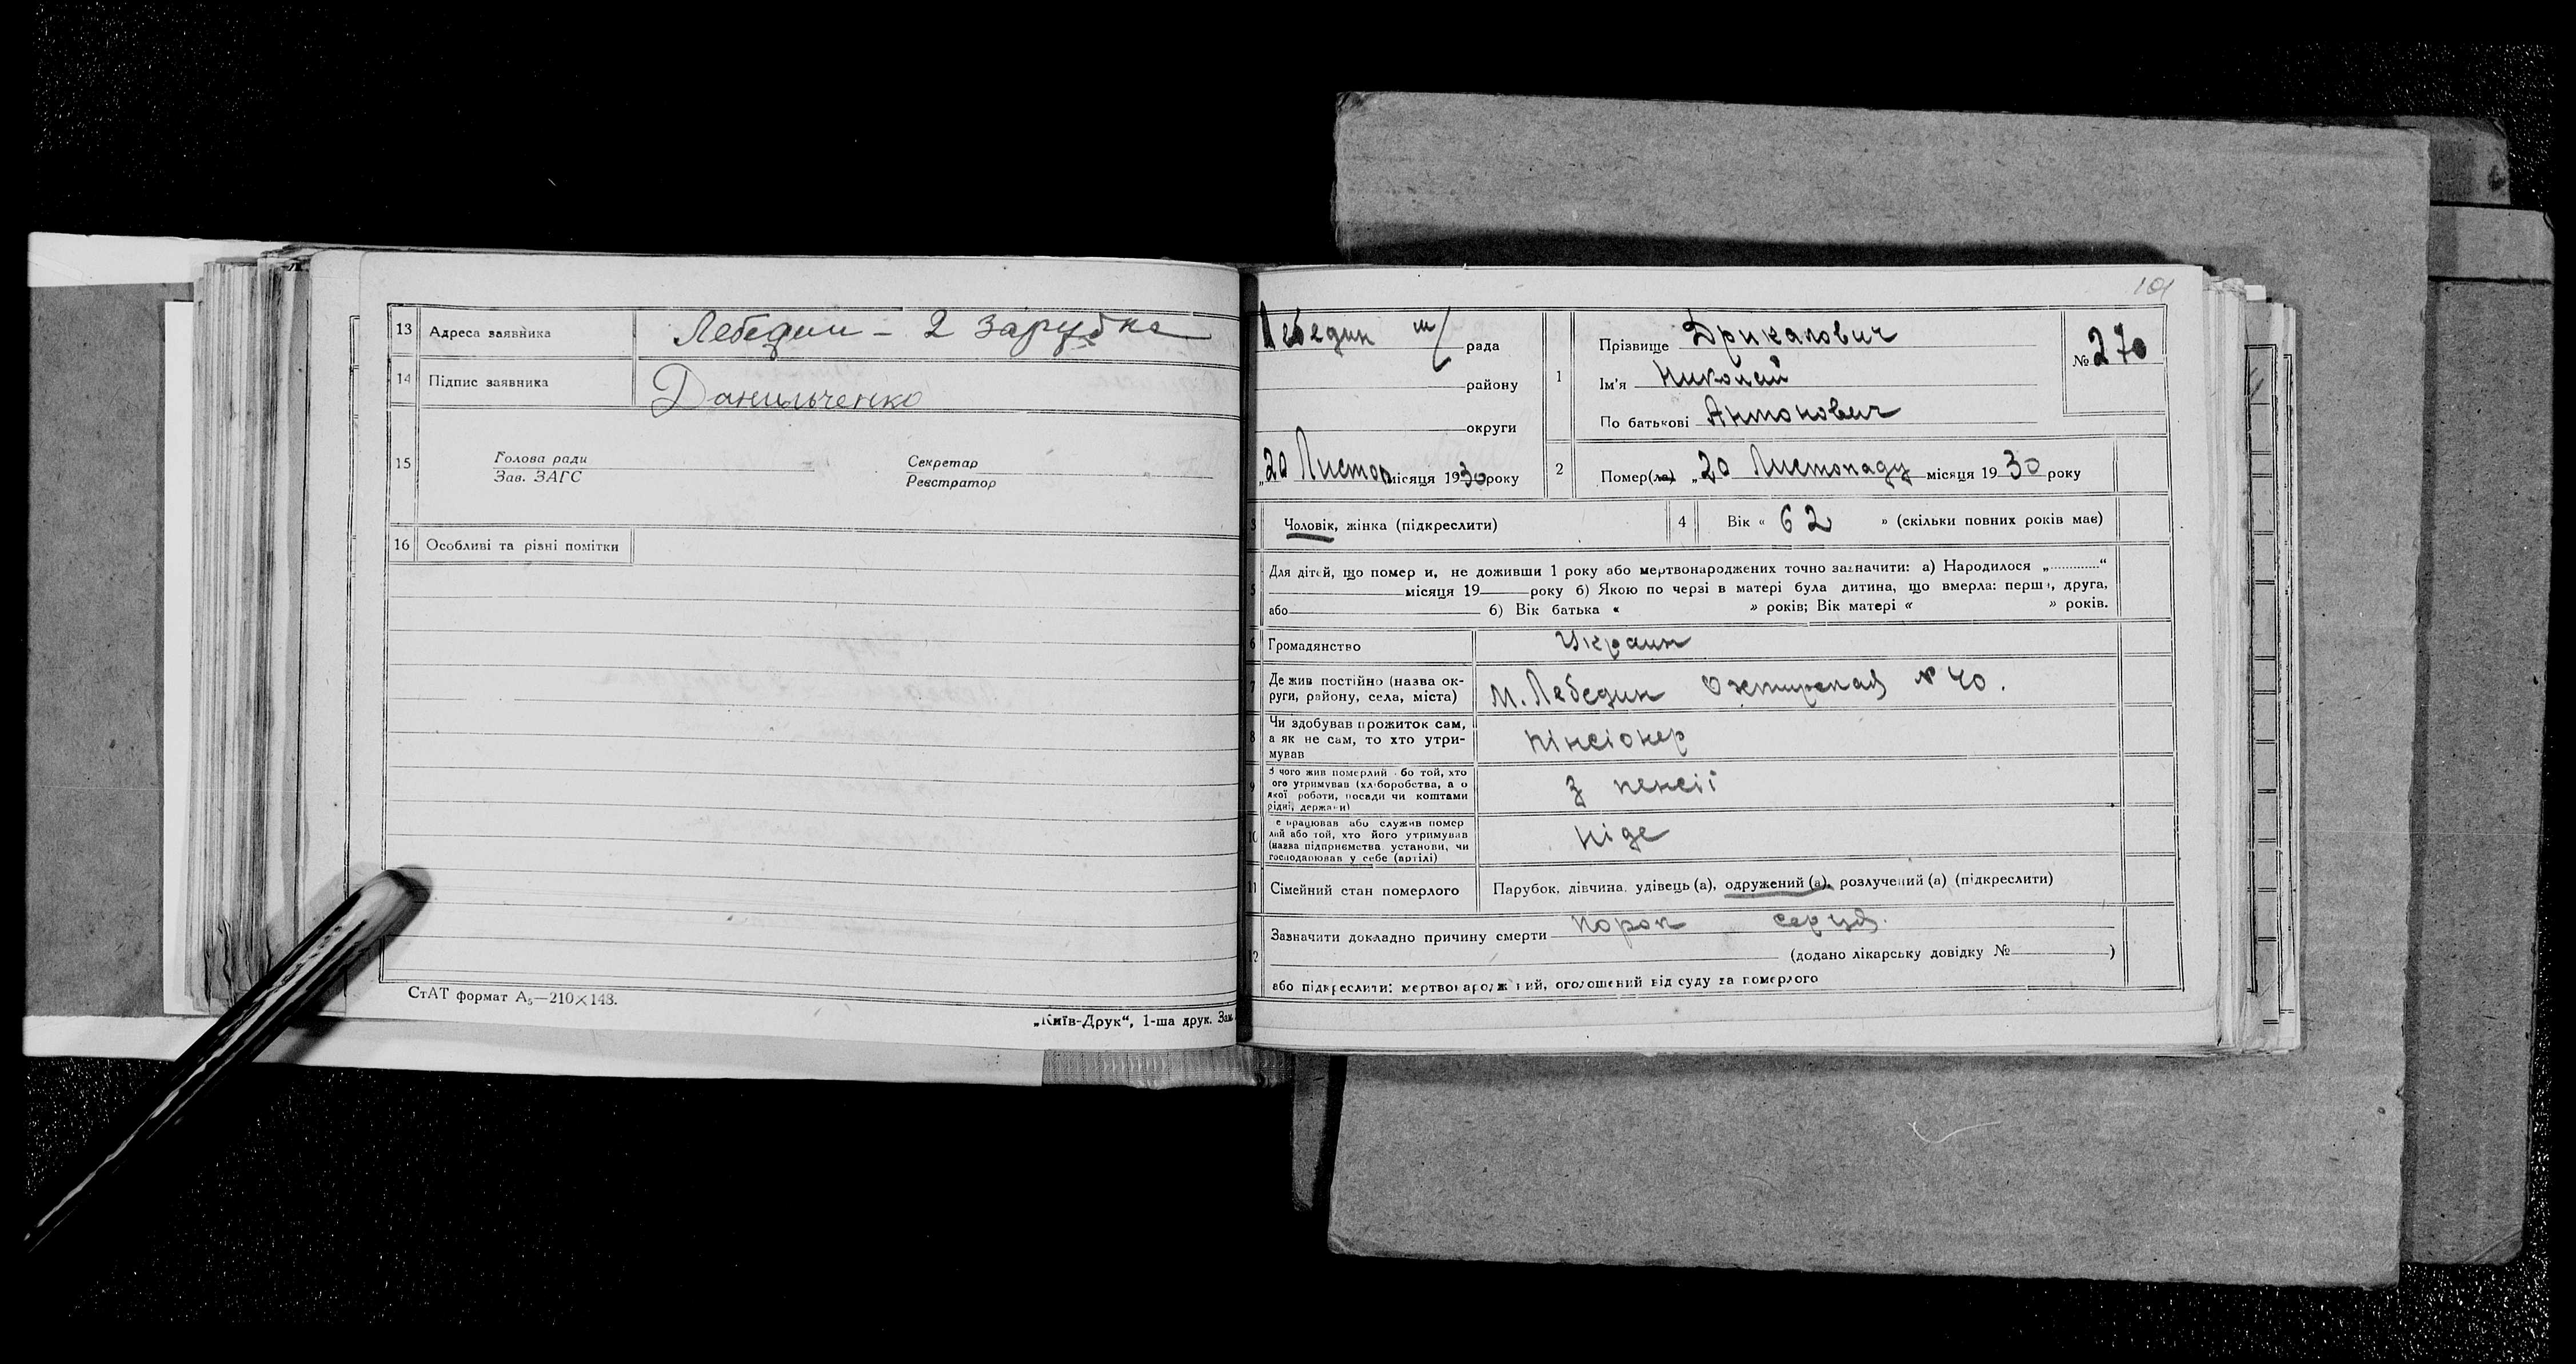 13 Адреса заявника Лебедин – 2 Зарубка
14 Підпис заявника Данильченко
15 Голова ради
Зав. ЗАГС
Секретар
Реєстратор
16 Особливі та різні помітки
СтАТ формат А₅—210×148.
„Київ-Друк“, 1-ша друк. Зам
101
Лебедин м/ рада
району
округи
„20 Листоп місяця 1930 року
1 Прізвище Дрикалович
Ім'я Николай
По батькові Антонович
№ 270
2 Помер(ла) „20 Листопаду місяця 1930 року
3 Чоловік, жінка (підкреслити)
4 Вік « 62 » (скільки повних років має)
5 Для дітей, що помер и, не доживши 1 року або мертвонароджених точно зазначити: а) Народилося „............“
місяця 19 року б) Якою по черзі в матері була дитина, що вмерла: перша, друга,
або б) Вік батька « » років; Вік матері « » років.
6 Громадянство Украин
7 Де жив постійно (назва ок-
руги, району, села, міста) м. Лебедин Охтирская № 40.
8 Чи здобував прожиток сам,
а як не сам, то хто утри-
мував пінсіонер
9 З чого жив померлий або той, хто
ого утримував (хліборобства, а о
якої роботи, посади чи коштами
рідні, держави) з пенсії
10 е працював або служив помер
лий або той, хто його утримував
(назва підприємства, установи, чи
господарював у себе (артілі) ніде
11 Сімейний стан померлого Парубок, дівчина, удівець (а), одружений (а), розлучений (а) (підкреслити)
12 Зазначити докладно причину смерти порок серця.
(додано лікарську довідку № )
або підкреслити: мертвонароджений, оголошений від суду за померлого